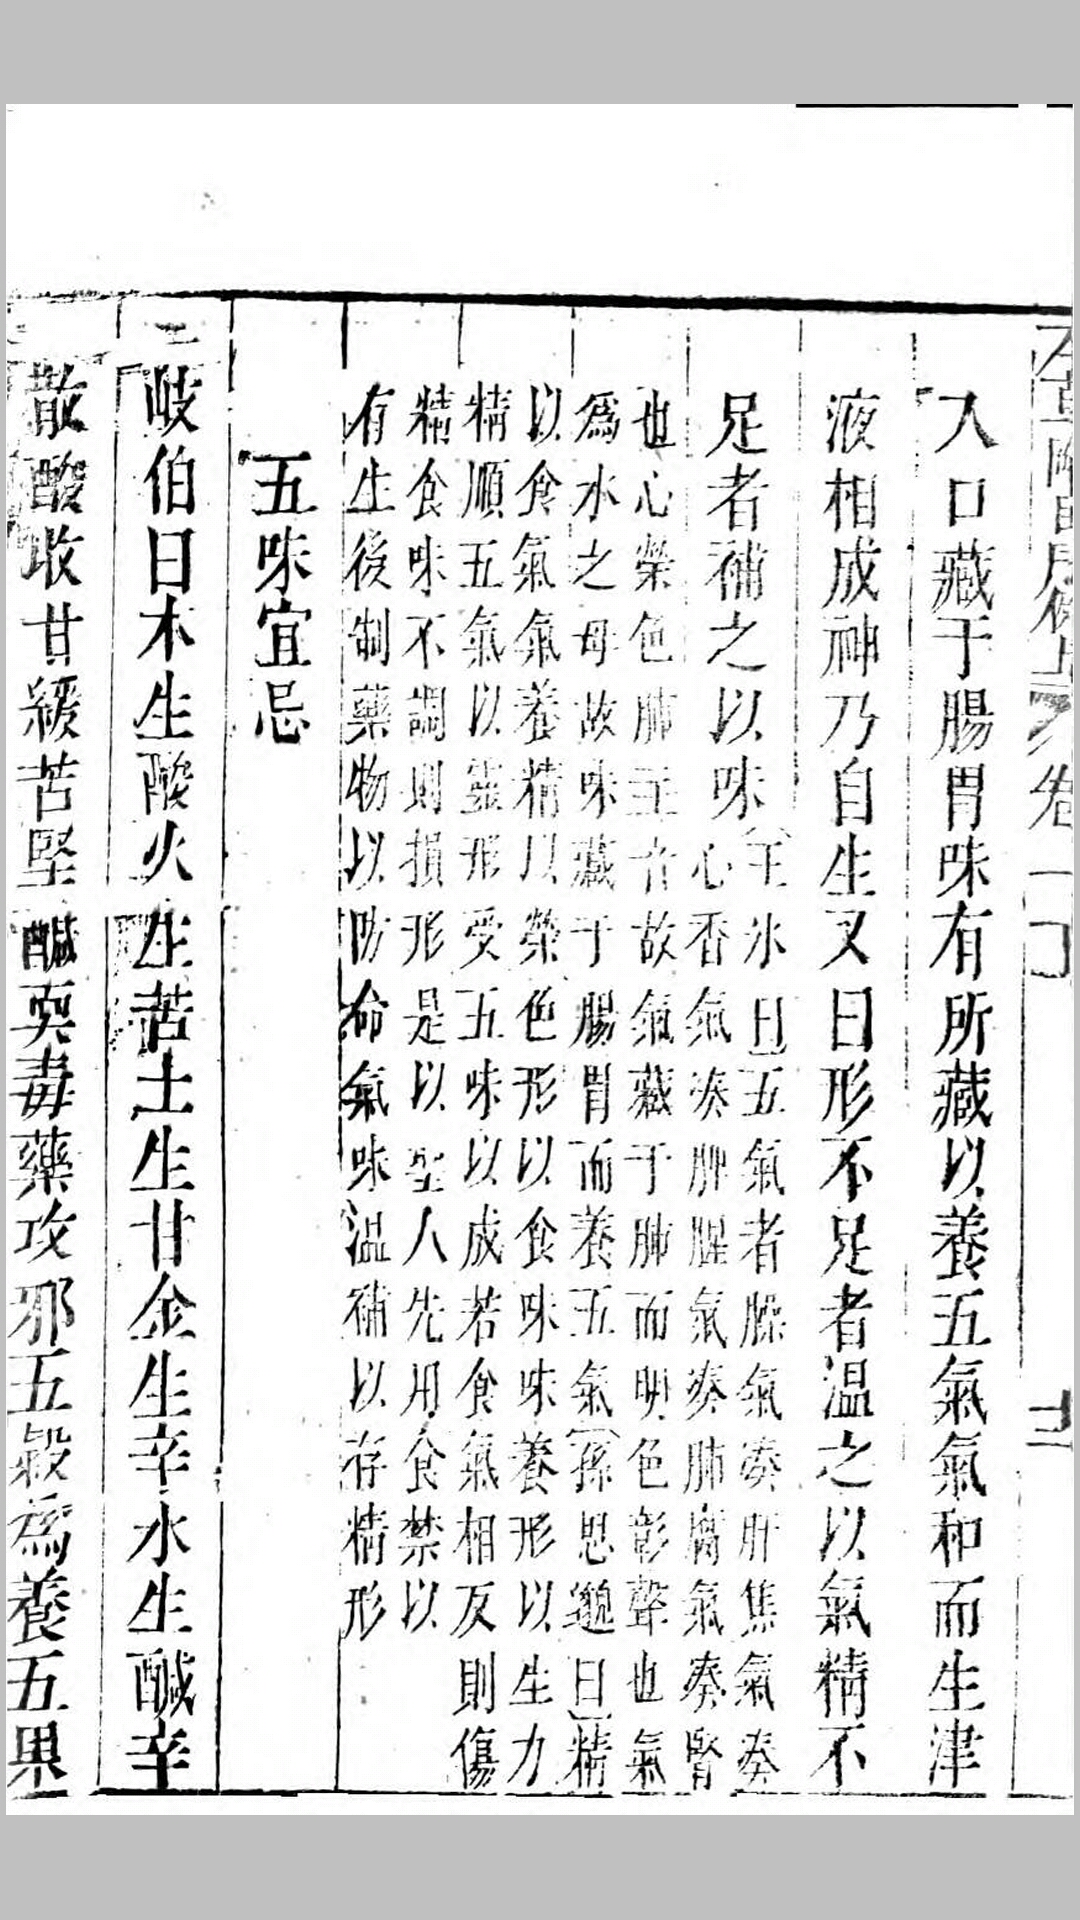 入口藏于腸胃味有所藏以養五氣氣和而生津
液相成神乃自生又曰形不足者溫之以氣精不
足者補之以味
王冰曰五氣者臊氣凑肝焦氣凑
心香氣凑脾腥氣凑肺腐氣凑腎
也心榮色肺主音故氣藏于肺而明色彰聲也氣
為水之母故味藏于腸胃而養五氣孫思邈曰精
以食氣氣養精以榮色形以食味味養形以生力
精順五氣以靈形受五味以成若食氣相反則傷
精食味不調則損形是以聖人先用食禁以
有生後制藥物以防命氣味溫補以存精形
五味宜忌
岐伯曰木生酸火生苦土生甘金生辛水生鹹辛
散酸收甘緩苦堅鹹耎毒藥攻邪五穀為養五果